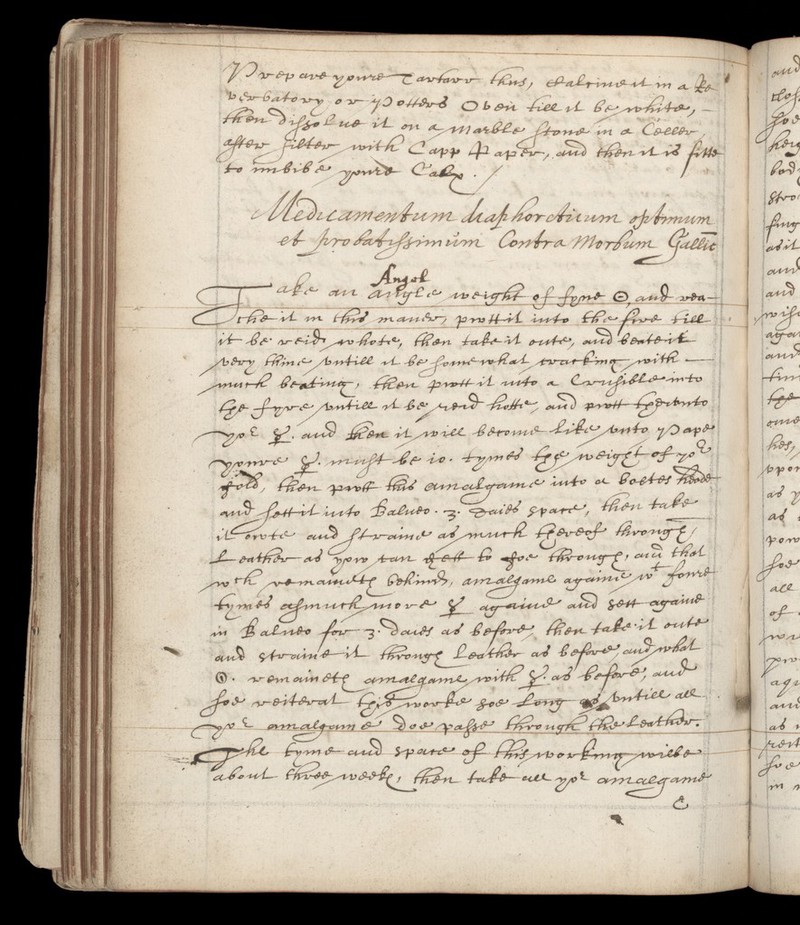 Prepare youre Tartarr thus, Calcine it in a Re
verbatory or Potters Oven till it be white, –
then dissolve it on a marble stone in a Celler,
after filter with Capp Paper, and then it is fitte
to imbibe youre Calx ./
Medicamentum diaphoreticum optimum
et probatissimum Contra Morbum Gallic̄
Angel
Take an angle weight of fyne ☉, and rea–
che it in this maner, putt it into the fire till
it be reid whote, then take it oute, and beate it
very thine untill it be somewhat cracking with –
much beating, then putt it into a Crusible into
the fyre untill it be reid hotte, and putt thereunto
yor ☿. and then it will become like unto Pape
youre ☿. must be 10. tymes the weight of yor
gold, then putt this amalgame into a boltes heade
and sett it into Balneo .3. daies space, then take
it owte and straine as much thereof through
Leather as yow can gett to goe through, and that
wch remaineth behind, amalgame againe wt foure
tymes asmuch more ☿ againe and sett againe
in Balneo for 3. daies as before, then take it oute
and straine it through Leather as before and what
☉. remaineth amalgame with ☿. as before, and
soe reiterat this worke soe long as untill all
yor amalgame doe passe through the Leather.
The tyme and space of this working wilbe
about three weekes, then take all yor amalgame